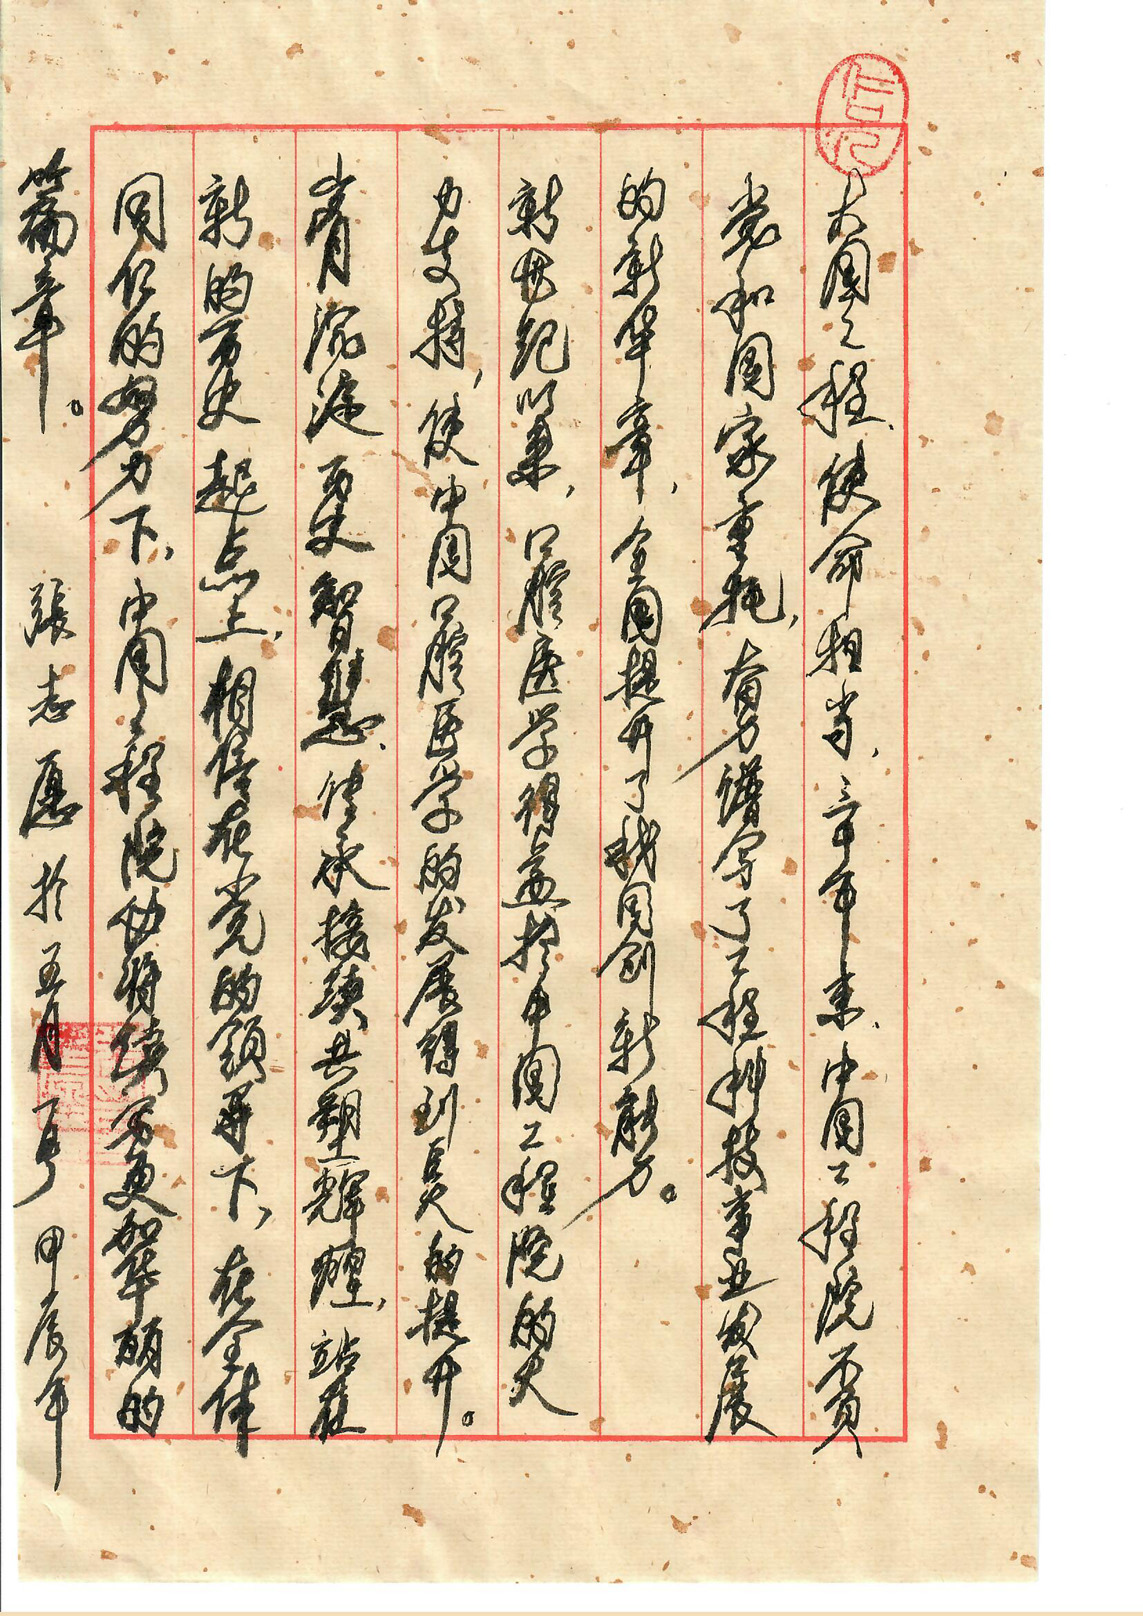 大国工程、使命担当，三十年来、中国工程院不负
党和国家重托，奋勇谱写了工程科技事业发展
的新华章，全面提升了我国创新能力。
新世纪以来，口腔医学得益于中国工程院的大
力支持，使中国口腔医学的发展得到长足的提升。
岁月沉淀历史智慧、传承接续共塑辉煌，站在
新的历史起点上，相信在党的领导下，在全体
同仁的努力下，中国工程院必将续写更加华丽的
篇章。
張志愿於五月一号甲辰年